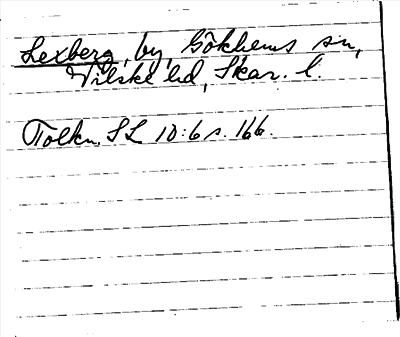 Lexberg, by Gökhems sn,
Vilske hd, Skar. l.
Tolkn. SL 10:6 s. 166.